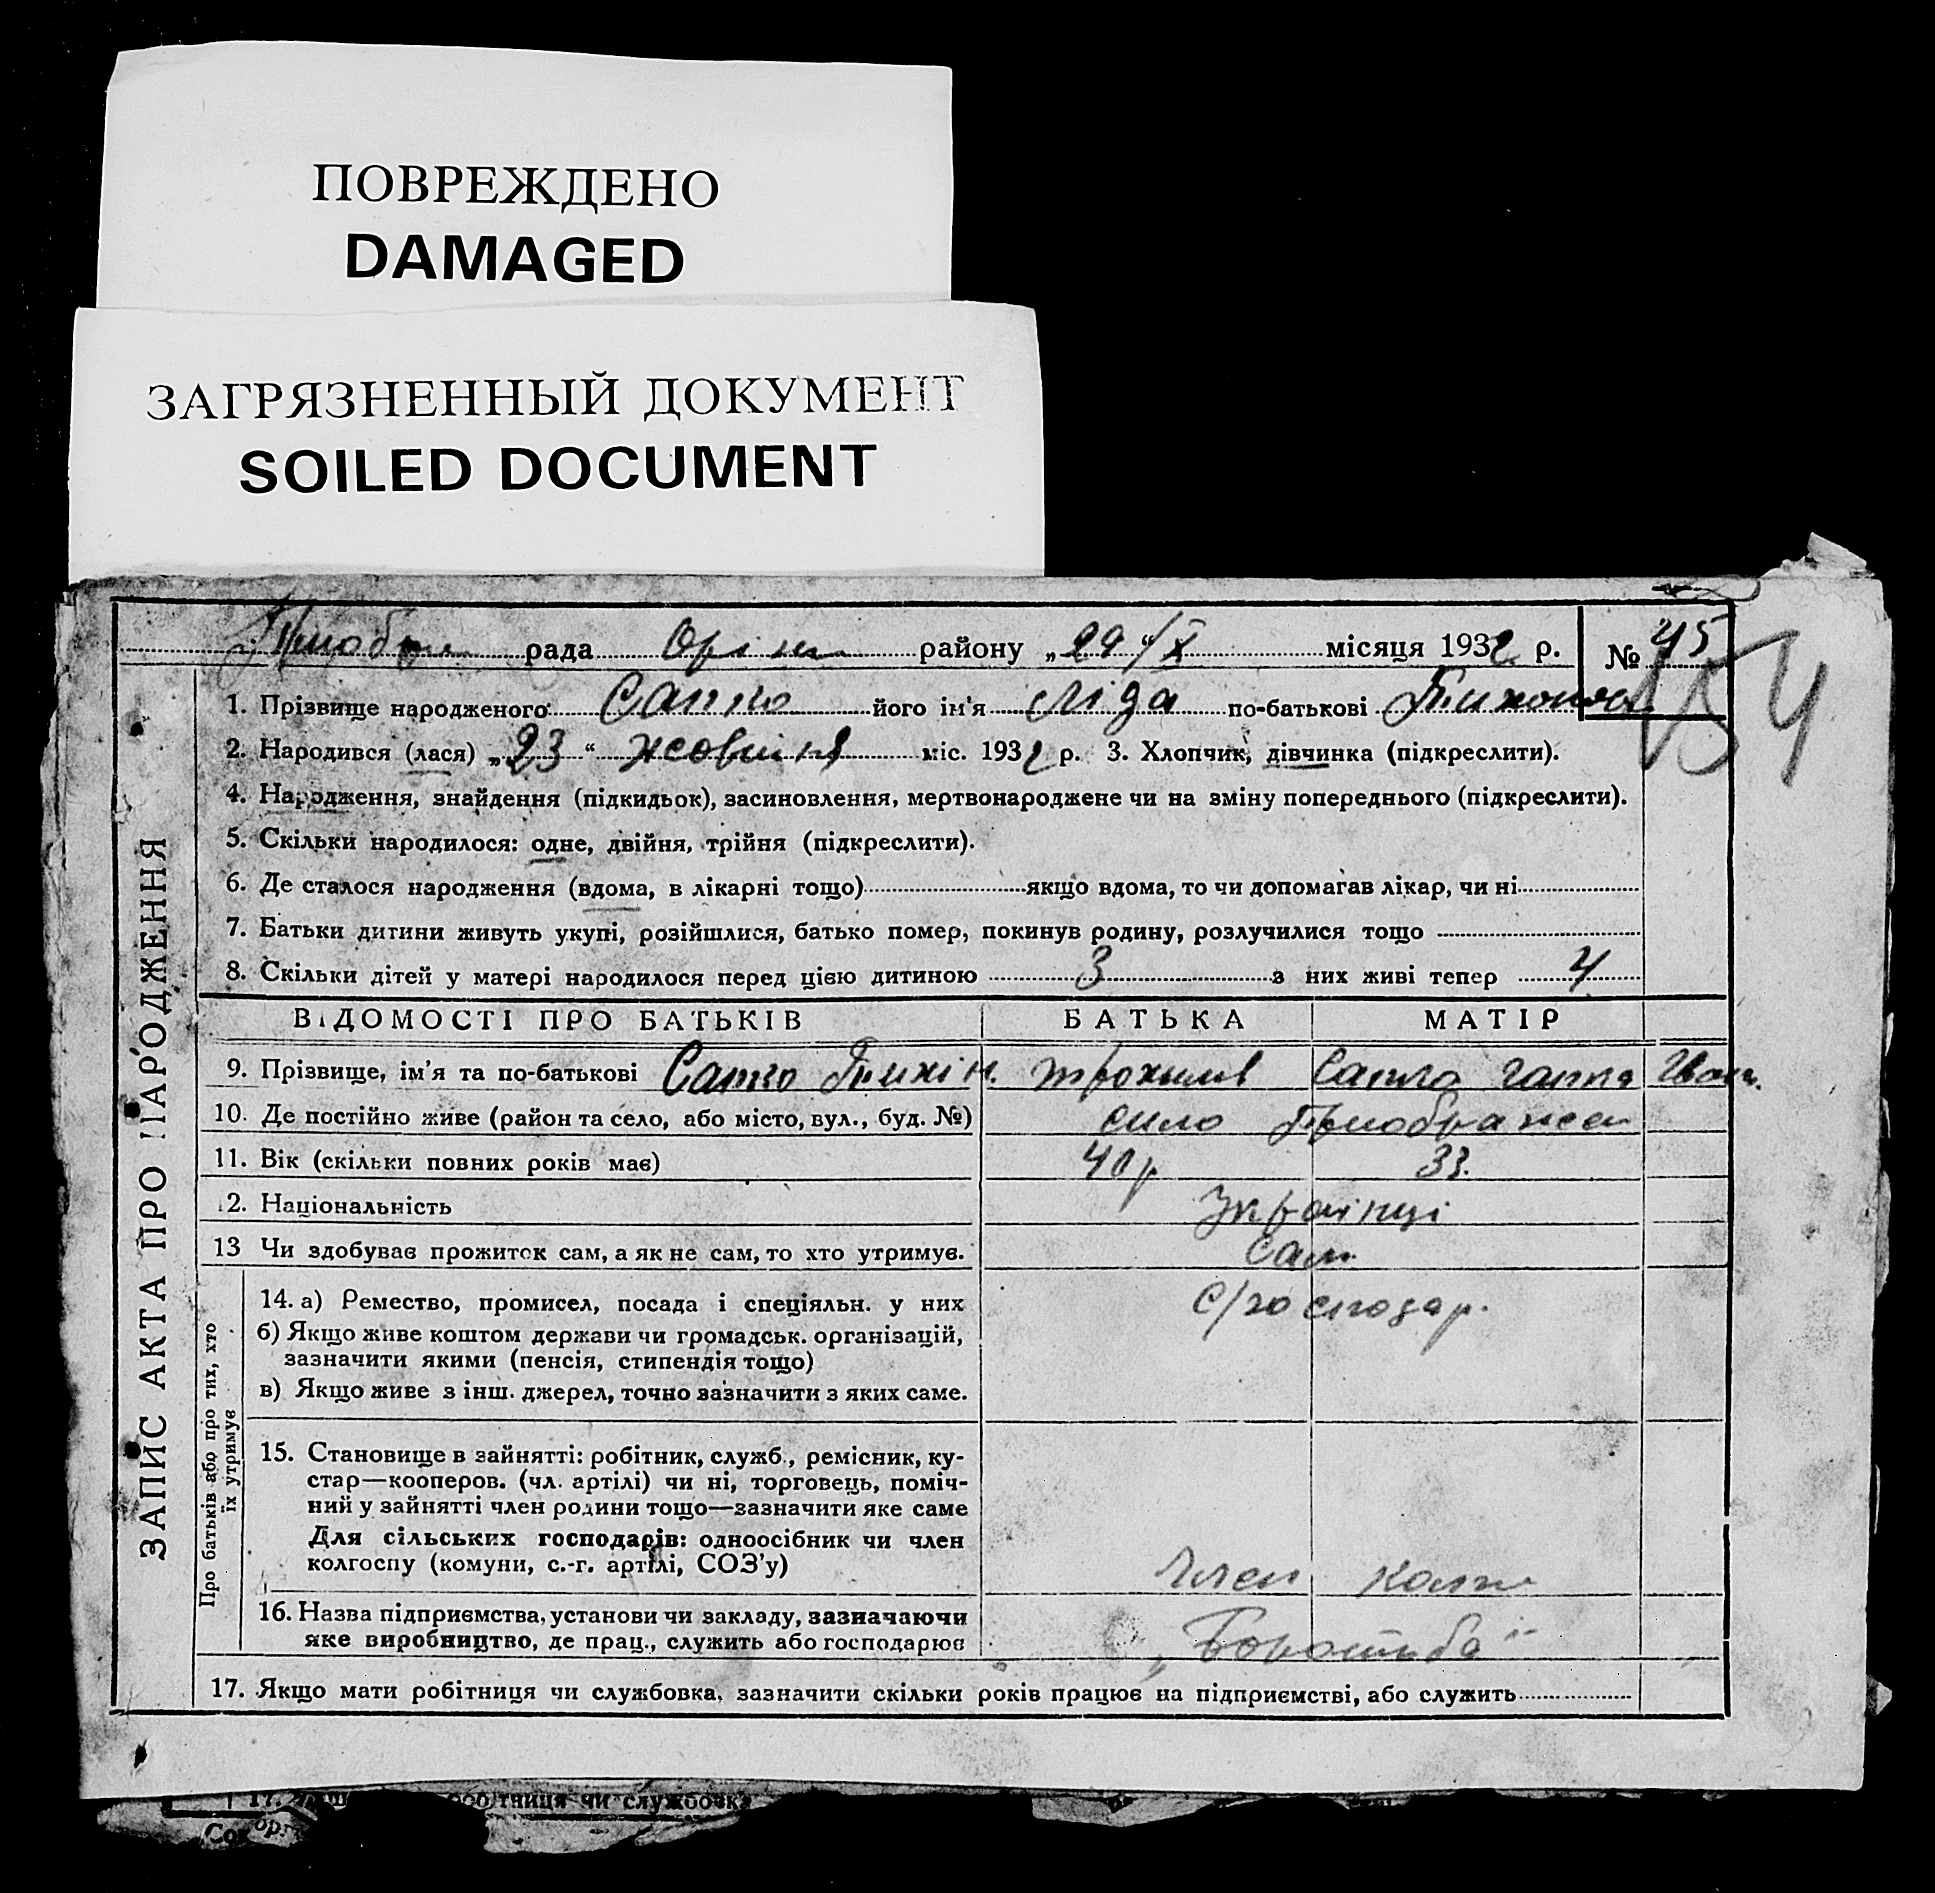 ПОВРЕЖДЕНО
DAMAGED
ЗАГРЯЗНЕННЫЙ ДОКУМЕНТ
SOILED DOCUMENT
рада Оріл району „29“/X місяця 1932 р. № 45
154
ЗАПИС АКТА ПРО НАРОДЖЕННЯ
1. Прізвище народженого Сапко його ім'я Ліда по-батькові Тихоновна
2. Народився (лася) „23“ жовтня міс. 1932 р. 3. Хлопчик, дівчинка (підкреслити).
4. Народження, знайдення (підкидьок), засиновлення, мертвонароджене чи на зміну попереднього (підкреслити).
5. Скільки народилося: одне, двійня, трійня (підкреслити).
6. Де сталося народження (вдома, в лікарні тощо) якщо вдома, то чи допомагав лікар, чи ні
7. Батьки дитини живуть укупі, розійшлися, батько помер, покинув родину, розлучилися тощо
8. Скільки дітей у матері народилося перед цією дитиною 3 з них живі тепер 4
ВІДОМОСТІ ПРО БАТЬКІВ БАТЬКА МАТІР
9. Прізвище, ім'я та по-батькові Сапко Тихін. Трохимів Сапко Гапка Іван.
10. Де постійно живе (район та село, або місто, вул., буд. №) село Приображен
11. Вік (скільки повних років має) 40 р 33.
12. Національність Українці
13 Чи здобуває прожиток сам, а як не сам, то хто утримує. Сам
Про батьків або про тих, хто
їх утримує
14. а) Ремество, промисел, посада і спеціяльн. у них с/господар.
б) Якщо живе коштом держави чи громадськ. організацій,
зазначити якими (пенсія, стипендія тощо)
в) Якщо живе з інш. джерел, точно зазначити з яких саме.
15. Становище в зайнятті: робітник, служб., ремісник, ку-
стар—кооперов. (чл. артілі) чи ні, торговець, поміч-
ний у зайнятті член родини тощо—зазначити яке саме
Для сільських господарів: одноосібник чи член
колгоспу (комуни, с.-г. артілі, СОЗ'у) Член колг
16. Назва підприємства, установи чи закладу, зазначаючи
яке виробництво, де прац., служить або господарює „Боротьба“
17. Якщо мати робітниця чи службовка, зазначити скільки років працює на підприємстві, або служить
робітниця чи службовка